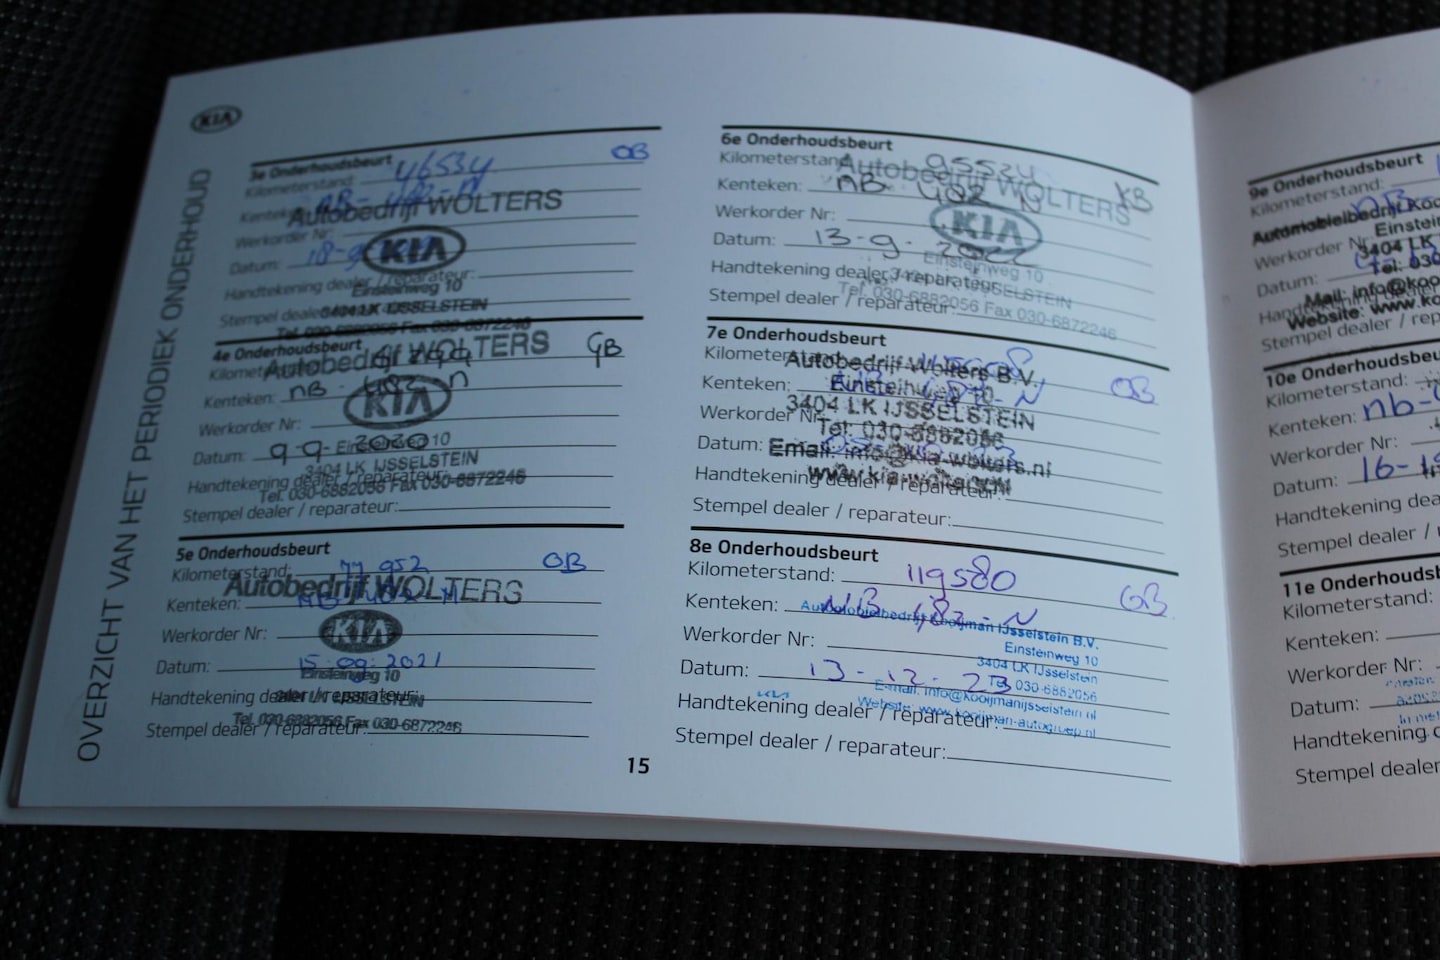 KIA
OVERZICHT VAN HET PERIODIEK ONDERHOUD
3e Onderhoudsbeurt
Kilometerstand: 46534 OB
Kenteken: NB-482-N
Autobedrijf WOLTERS
Werkorder Nr:
KIA
Datum: 18-9
Handtekening dealer / reparateur:
Einsteinweg 10
Stempel dealer
3404 LK IJSSELSTEIN
Tel. 030-6882056 Fax 030-6872246
4e Onderhoudsbeurt
Autobedrijf WOLTERS
GB
Kenteken: NB-482-N
KIA
Werkorder Nr:
Datum: 9-9-2020
Einsteinweg 10
3404 LK IJSSELSTEIN
Handtekening dealer / reparateur:
Tel. 030-6882056 Fax 030-6872246
Stempel dealer / reparateur:
5e Onderhoudsbeurt
Kilometerstand: 77952 OB
Autobedrijf WOLTERS
Kenteken: NB-482-N
Werkorder Nr:
KIA
Datum: 15-09-2021
Einsteinweg 10
Handtekening dealer / reparateur:
3404 LK IJSSELSTEIN
Tel. 030-6882056 Fax 030-6872246
Stempel dealer / reparateur:
6e Onderhoudsbeurt
Kilometerstand: 95524
Autobedrijf WOLTERS
Kenteken: NB 482 N
Werkorder Nr:
KIA
Datum: 13-9-2022
Einsteinweg 10
Handtekening dealer / reparateur:
3404 LK IJSSELSTEIN
Tel. 030-6882056 Fax 030-6872246
Stempel dealer / reparateur:
7e Onderhoudsbeurt
Kilometerstand:
Autobedrijf Wolters B.V.
Kenteken: OB
3404 LK IJSSELSTEIN
Werkorder Nr:
Tel: 030-6882056
Datum:
Email: info@kia-wolters.nl
www.kia-wolters.nl
Handtekening dealer / reparateur:
Stempel dealer / reparateur:
8e Onderhoudsbeurt
Kilometerstand: 119580
Kenteken: NB-482-N OB
Automobielbedrijf Kooijman IJsselstein B.V.
Einsteinweg 10
Werkorder Nr:
3404 LK IJsselstein
Datum: 13-12-23
Tel. 030-6882056
E-mail: info@kooijmanijsselstein.nl
Handtekening dealer / reparateur:
Website: www.kooijman-autogroep.nl
Stempel dealer / reparateur:
15
9e Onderhoudsbeurt
Kilometerstand:
Automobielbedrijf Koo
Einstei
Werkorder Nr
3404 LK
Tel: 030
Datum:
Mail: info@koo
Website: www.ko
Stempel dealer / rep
10e Onderhoudsbeu
Kilometerstand:
Kenteken: nb-
Werkorder Nr:
Datum: 16-1
Handtekening dea
Stempel dealer /
11e Onderhoudsb
Kilometerstand:
Kenteken:
Werkorder Nr:
Datum:
Handtekening
Stempel dealer